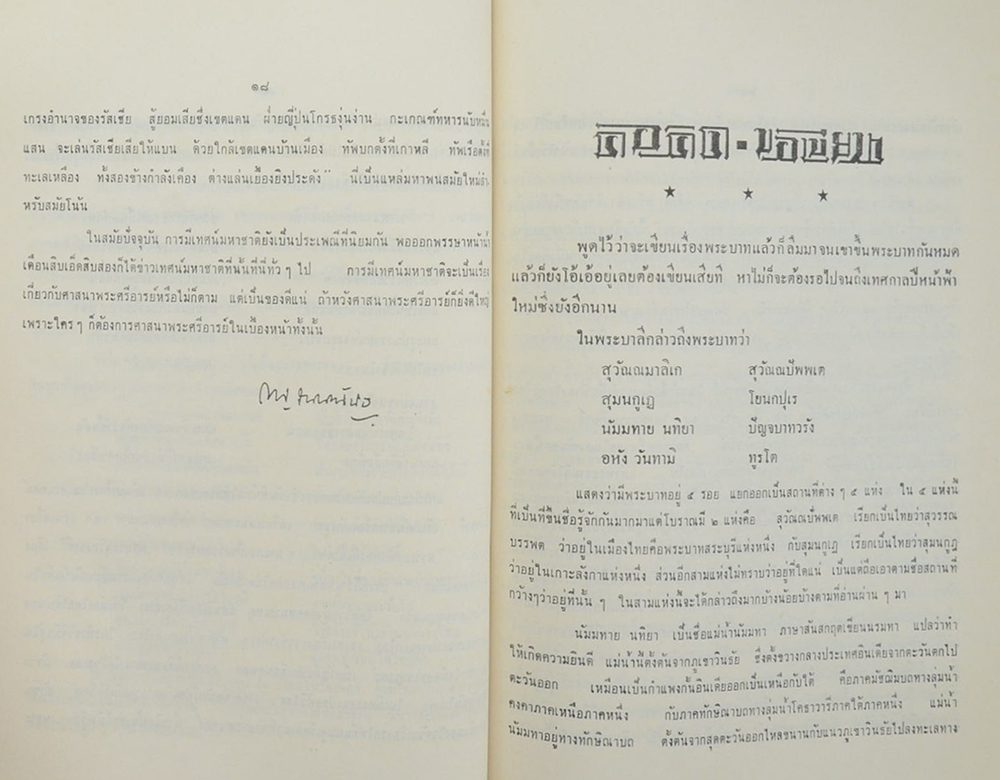 ๑๘
เกรงอำนาจของรัสเซีย สู้ยอมเสียซึ่งเขตแดน ฝ่ายญี่ปุ่นโกรธงุ่นง่าน กะเกณฑ์ทหารนับหมื่น
แสน จะเล่นรัสเซียเสียให้แบน ด้วยใกล้เขตแดนบ้านเมือง ทัพบกตั้งที่เกาหลี ทัพเรือ
ทะเลเหลือง ทั้งสองข้างกำลังเคือง ต่างแล่นเยื้องยิงประดัง" นี่เป็นแหล่มหาพนสมัยใหม่
หรับสมัยโน้น
ในสมัยปัจจุบัน การมีเทศน์มหาชาติยังเป็นประเพณีที่นิยมกัน พอออกพรรษาหน้าน้ำ
เดือนสิบเอ็ดสิบสองก็ได้ข่าวเทศน์มหาชาติที่นั้นที่นี่ทั่ว ๆ ไป การมีเทศน์มหาชาติจะเป็นเรื่อง
เกี่ยวกับศาสนาพระศรีอารย์หรือไม่ก็ตาม แต่เป็นของดีแน่ ถ้าหวังศาสนาพระศรีอารย์ก็ยิ่งดีใหญ่
เพราะใคร ๆ ก็ต้องการศาสนาพระศรีอารย์ในเบื้องหน้าทั้งนั้น
คิดคิด - เขียน
พูดไว้ว่าจะเขียนเรื่องพระบาทแล้วก็ลืมมาจนเขาขึ้นพระบาทกันหมด
แล้วก็ยังโอ้เอ้อยู่เลยต้องเขียนเสียที หาไม่ก็จะต้องรอไปจนถึงเทศกาลปีหน้าฟ้า
ใหม่ซึ่งยังอีกนาน
ในพระบาลีกล่าวถึงพระบาทว่า
สุวัณณมาลิเก สุวัณณปัพพเต
สุมนกูเฏ โยนกปุเร
นัมมทาย นทิยา ปัญจบาทวรัง
อหัง วันทามิ ทูรโต
แสดงว่ามีพระบาทอยู่ ๕ รอย แยกออกเป็นสถานที่ต่าง ๆ ๕ แห่ง ใน ๕ แห่งนี้
ที่เป็นที่ขึ้นชื่อรู้จักกันมากมาแต่โบราณมี ๒ แห่งคือ สุวัณณปัพพเต เรียกเป็นไทยว่าสุวรรณ
บรรพต ว่าอยู่ในเมืองไทยคือพระบาทสระบุรีแห่งหนึ่ง กับสุมนกูเฏ เรียกเป็นไทยว่าสุมนกูฏ
ว่าอยู่ในเกาะลังกาแห่งหนึ่ง ส่วนอีกสามแห่งไม่ทราบว่าอยู่ที่ใดแน่ เป็นแต่ถือเอาตามชื่อสถานที่
กว้างๆว่าอยู่ที่นั้น ๆ ในสามแห่งนี้จะได้กล่าวถึงมากบ้างน้อยบ้างตามที่อ่านผ่าน ๆ มา
นัมมทาย นทิยา เป็นชื่อแม่น้ำนัมมทา ภาษาสันสกฤตเขียนนรมทา แปลว่าทำ
ให้เกิดความยินดี แม่น้ำนี้ตั้งต้นจากภูเขาวินธัย ซึ่งตั้งขวางกลางประเทศอินเดียจากตะวันตกไป
ตะวันออก เหมือนเป็นกำแพงกั้นอินเดียออกเป็นเหนือกับใต้ คือภาคมัชฌิมบถทางลุ่มน้ำ
คงคาภาคเหนือภาคหนึ่ง กับภาคทักษิณาบถทางลุ่มน้ำโคธาวารีภาคใต้ภาคหนึ่ง แม่น้ำ
นัมมทาอยู่ทางทักษิณาบถ ตั้งต้นจากสุดตะวันออกไหลขนานกับแนวภูเขาวินธัยไปลงทะเลทาง